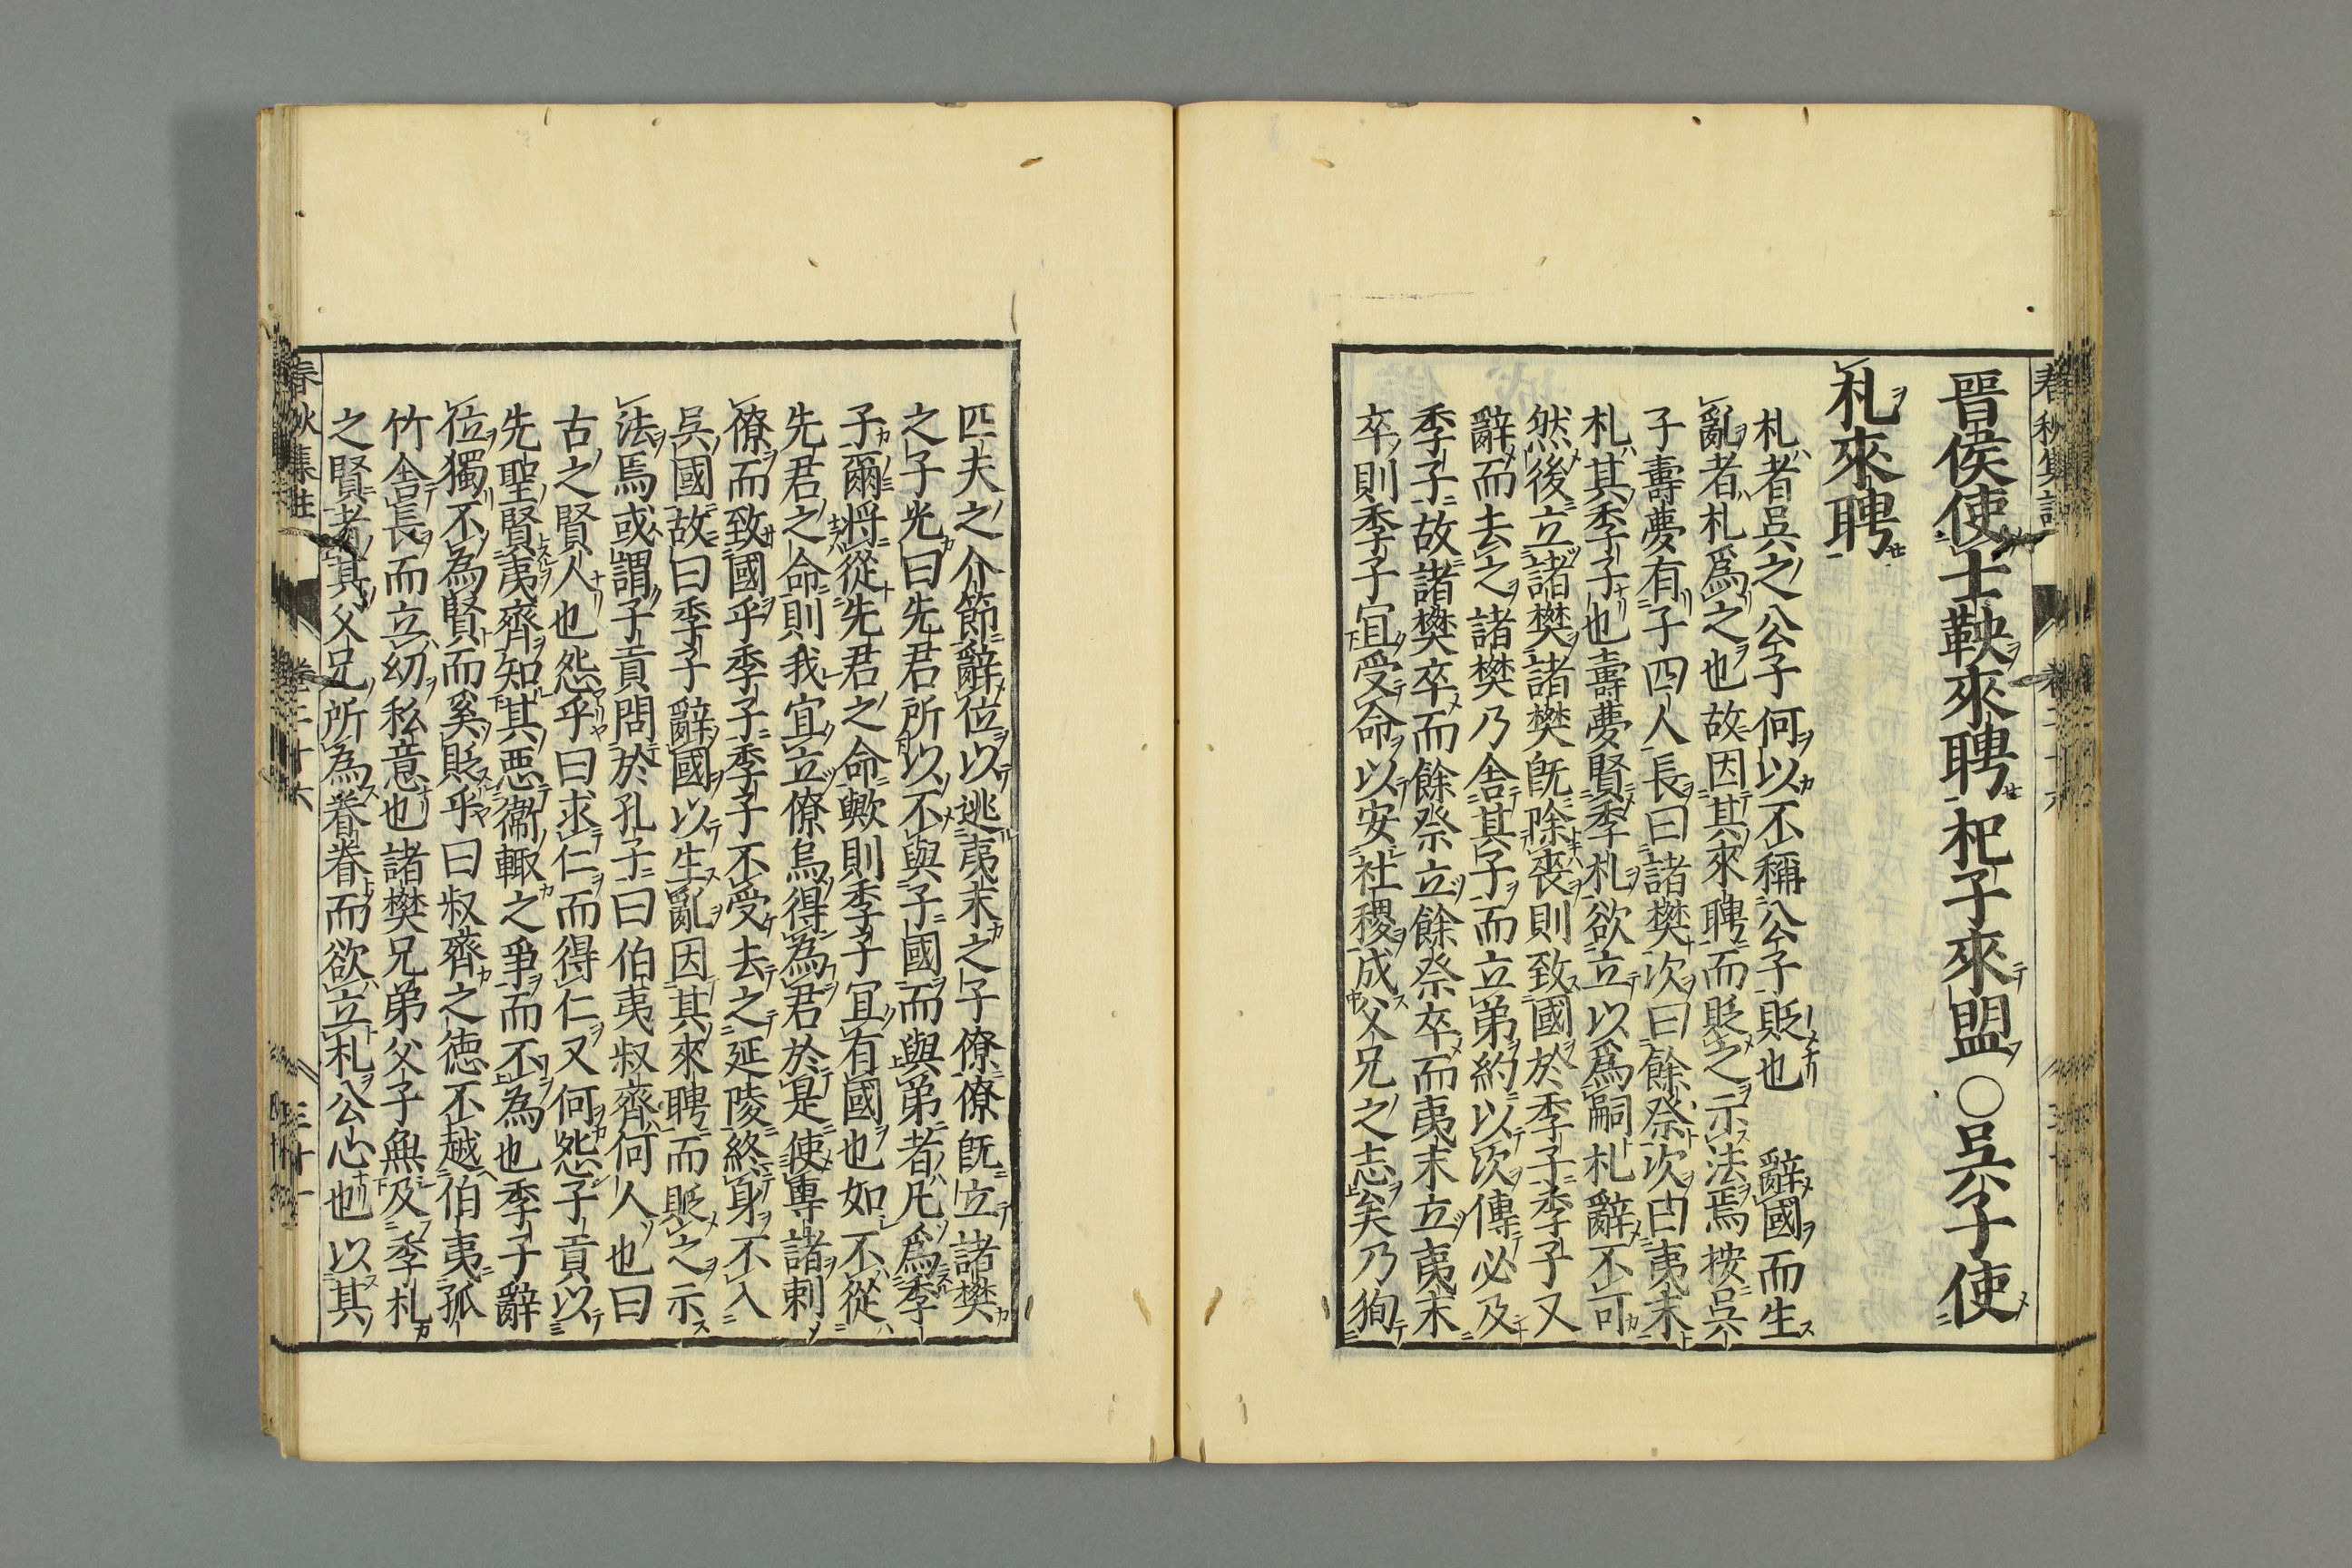 晉侯使士鞅來聘杞子來盟○吳子使
札來聘
札者吳之公子何以不稱公子貶也辭國而生
亂者札爲之也故因其來聘而貶之示法焉按吳
子壽夢有子四人長曰諸樊次曰餘祭次曰夷末
札其季子也壽夢賢季札欲立以爲嗣札辭不可
然後立諸樊諸樊旣除喪則致國於季子季子又
辭而去之諸樊乃舍其子而立弟約以次傳必及
季子故諸樊卒而餘祭立餘祭卒而夷末立夷末
卒則季子宜受命以安社稷成父兄之志矣乃狥
匹夫之介節辭位以逃夷末之子僚僚旣立諸樊
之子光曰先君所以不與子國而與弟者凡爲季
子爾將從先君之命歟則季子宜有國也如不從
先君之命則我宜立僚烏得為君於是使專諸刺
僚而致國乎季子季子不受去之延陵終身不入
吳國故曰季子辭國以生亂因其來聘而貶之示
法焉或謂子貢問於孔子曰伯夷叔齊何人也曰
古之賢人也怨乎曰求仁而得仁又何怨子貢以
先聖賢夷齊知其惡衞輙之爭而不為也季子辭
位獨不為賢而奚貶乎曰叔齊之德不越伯夷孤
竹舍長而立幼私意也諸樊兄弟父子無及季札
之賢者其父兄所為眷眷而欲立札公心也以其
春秋集註
卷二十六
三十一